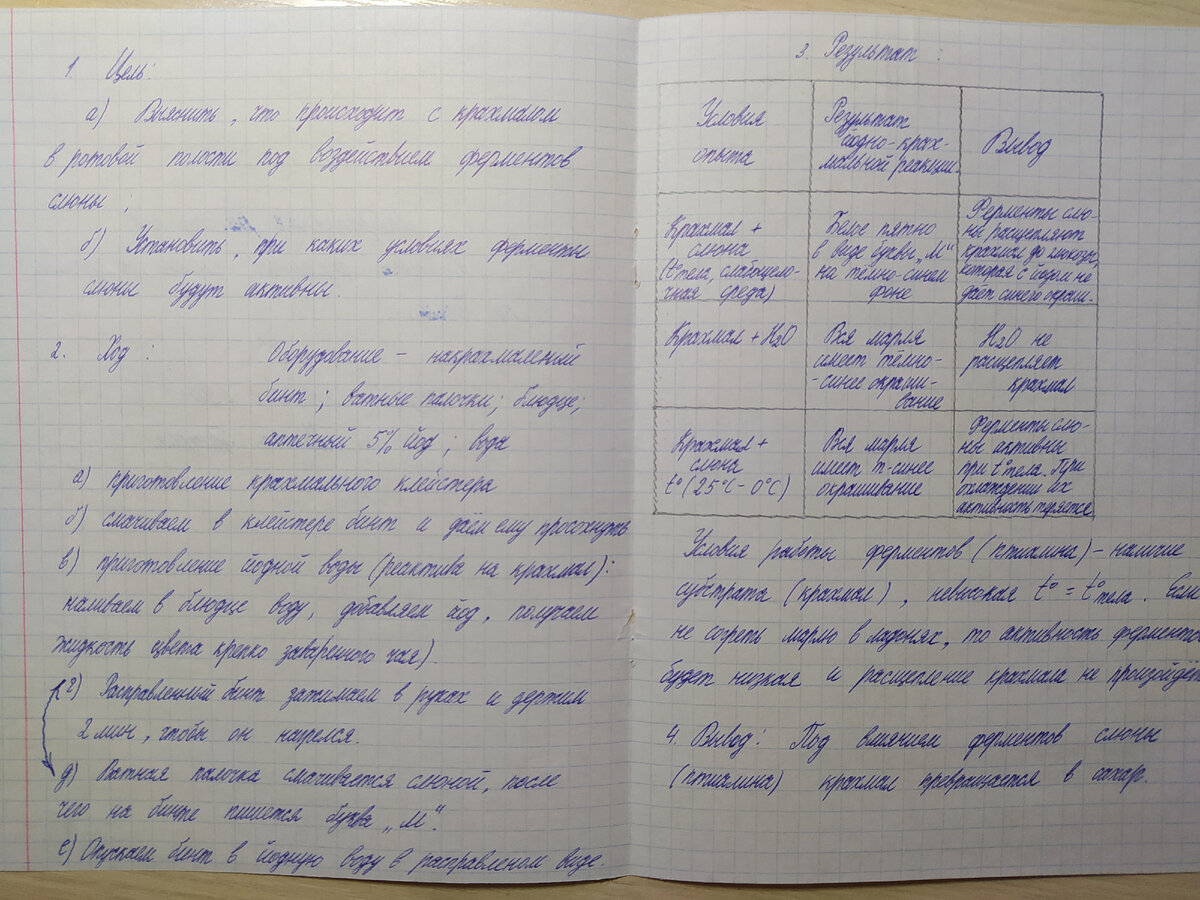 1. Цель:
а) Выяснить, что происходит с крахмалом
в ротовой полости под воздействием ферментов
слюны ;
б) Установить, при каких условиях ферменты
слюны будут активны.
2. Ход :
Оборудование – накрахмаленый
бинт ; ватные палочки; блюдце;
аптечный 5% йод ; вода
а) приготовление крахмального клейстера
б) смачиваем в клейстере бинт и даём ему просохнуть
в) приготовление йодной воды (реактива на крахмал):
наливаем в блюдце воду, добавляем йод, получаем
жидкость цвета крепко заваренного чая).
г) Расправленный бинт зажимаем в руках и держим
2 мин, чтобы он нагрелся.
д) Ватная палочка смачивается слюной, после
чего на бинте пишется буква „М".
е) Опускаем бинт в йодную воду в расправленом виде.
3. Результат :
Условия
опыта
Результат
йодно-крах-
мальной реакции.
Вывод
Крахмал +
слюна
(t° тела, слабощело-
чная среда)
Белое пятно
в виде буквы „М"
на тёмно-синем
фоне
Ферменты слю-
ны расщепляют
крахмал до глюкозы,
которая с йодом не
даёт синего окраш.
Крахмал + H2O
Вся марля
имеет тёмно-
-синее окраши-
вание
H2O не
расщепляет
крахмал
Крахмал +
слюна
t° (25°С – 0°С)
Вся марля
имеет т-синее
окрашивание
Ферменты слю-
ны активны
при t° тела. При
охлаждении их
активность теряется
Условия работы ферментов (птиалина) – наличие
субстрата (крахмал) , невысокая t° = t° тела. Если
не согреть марлю в ладонях, то активность фермента
будет низкая и расщепление крахмала не произойдёт
4. Вывод: Под влиянием ферментов слюны
(птиалина) крахмал превращается в сахар.